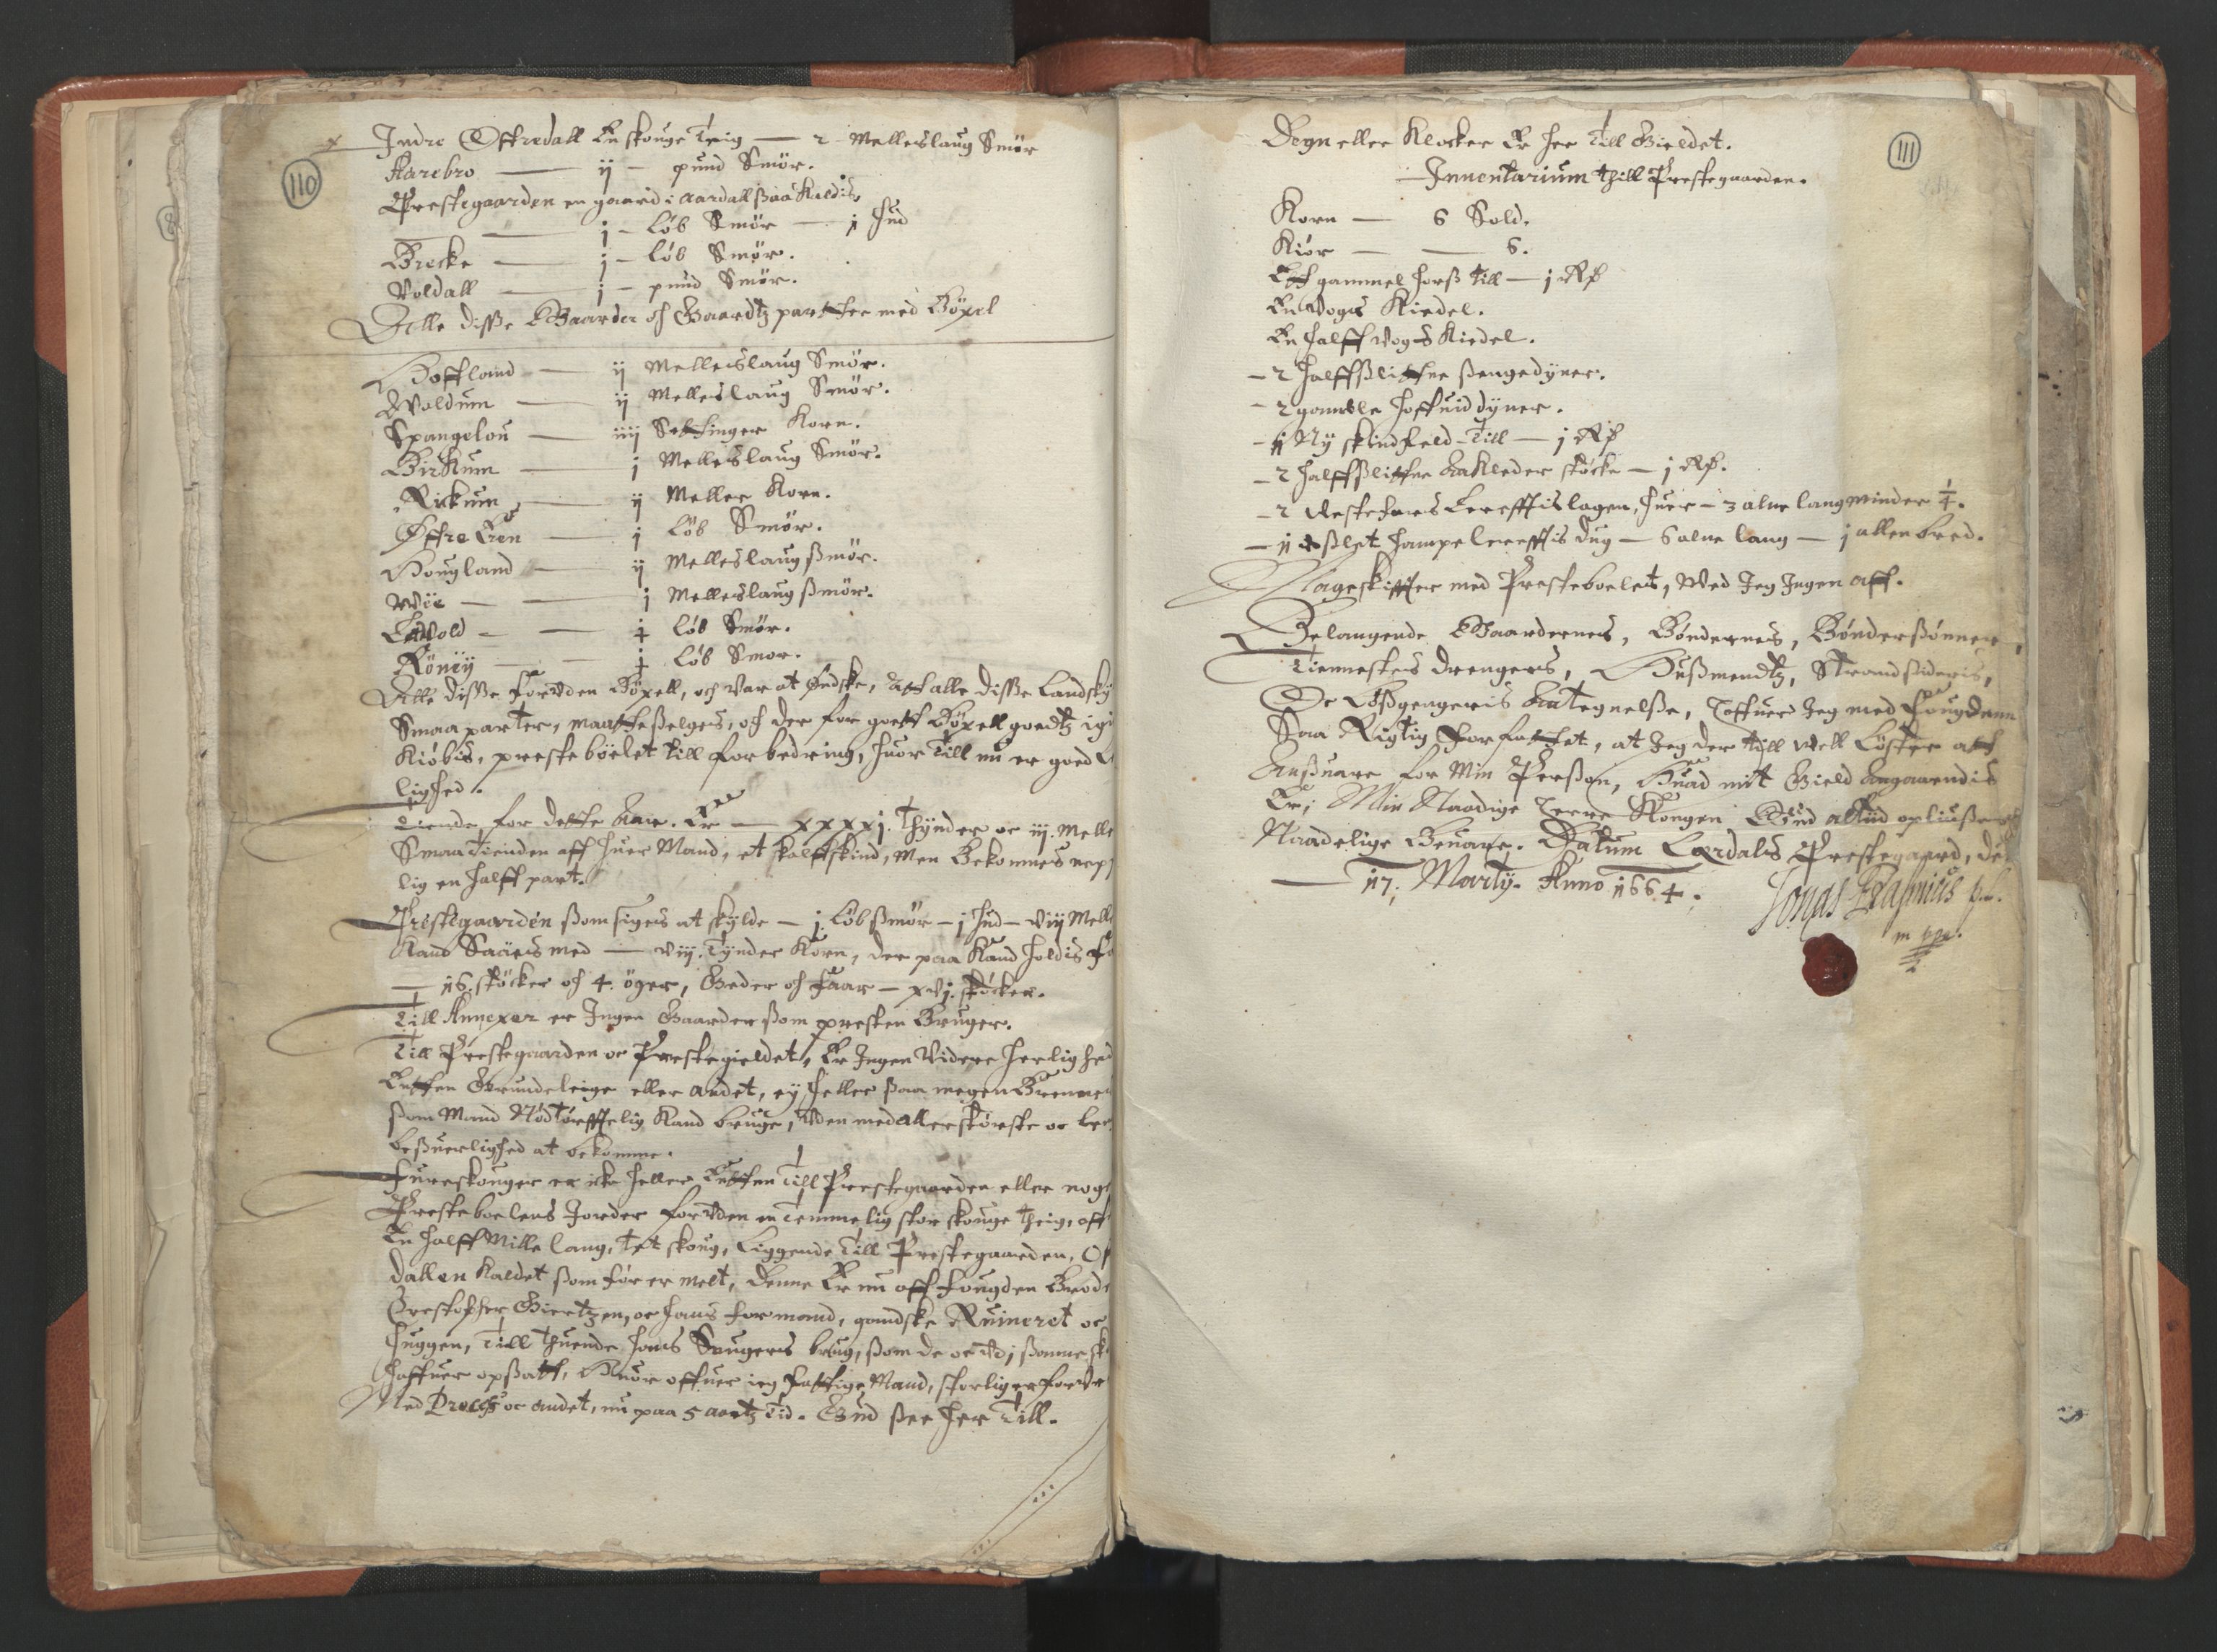 110
Indre Offredall En skouge Teig — 2 Melleslaug Smør
Farebro — ij — pund Smør.
Prestegaarden en gaard i Aardall ßaa Kaldis,
— j — Løb Smør — j Hud
Brecke — j — Løb Smør.
Voldall — j — pund Smør.
Alle disse Gaarder och Gaardtz parther med Bøxel
Hoffland — ij Melleslaug Smør.
Woldum — ij Melleslaug Smør.
Spangelou — iiij Settinger Korn.
Birkum — j Melleslaug Smør.
Rickum — ij Meller Korn.
Øffre Eren — j Løb Smør.
Hougland — ij Melleslaug ßmør.
Wii — j Melleslaug ßmør.
Løb Smør.
Rönëÿ — Løb Smør.
Alle disse foruden Bøxell, och var at ønske, att alle disse Landsky
Smaa parter, maatte ßelgis, och der for gott Bøxell goedtz igi
Kiøbis, preste bölet till forbedring, huor till nu er goed
lighed.
Tiende for dette Aar. Er — xxxxj. Thynder oc iij. Melle
Smaa Tienden aff huer Mand, et Kalffskind, Men Bekommes nep
lig en halff part.
Prestegaarden ßom siges at skylde — j. Løb ßmør — j Hud — viij Mell
Kand Saaes med — viij. Tynder Korn, der paa Kand holdis
— 16. støcker och 4. øger, Geder och Faar — xvj. støcker.
Till Annexer er Ingen Gaarder ßom presten Bruger.
Till Prestegaarden oc Prestegieldet, Er Ingen Videre Herlighed
Entten Grundeleige eller andet, ey heller ßaa megen Brenne
ßom Mand Nødtørfftelig Kand bruge, Uden med allerstørste oc
beßuerlighed at bekomme.
Fureskouger er icke heller Entten Till Prestegaarden eller nog
Prestebolens Jorder foruden en Temmelig stor skouge theig, off
En halff Mille lang, tet skoug, Liggende Till Prestegaarden, Of
dallen Kaldet ßom før er melt, Denne Er nu aff Fougden
Christopher Giertzen, oc hans formand, gandske Ruineret oc
huggen, Till thuende hans Saugers brug, ßom de oc udj samme sk
haffuer opßatt, Huor offuer ieg fattige Mand, storlig er
Med Proces oc andet, nu paa 5 aartz Tid. Gud ßee her Till.
111
Degn eller Klocker Er her Till Gieldet.
Inuentarium thill Prestegaarden.
Korn — 6 Sold.
Kiör — 6.
Ett gammel horß till — j Rd
En Vogs Kiedel.
En halff Vogs Kiedel.
— 2 halffslittne ßengedyner.
— 2 gamble hoffuid dyner.
— 1 Ny skindfeld — Till — j Rd
— 2 halffslittne Aakleder støcke — j Rd.
— 2 Lerefftis lagen, huer — 3 alne lang minder ¼.
— 1 ßlet hampe Lerefftis dug — 6 alne lang — j allen bred.
Mageskiffter med Presteboelet, Wed Jeg Ingen aff.
Belangende Gaardernes, Bøndernes, Bønderßønner,
Tienneste drengers, Hußmendtz, Strandßideris,
De Løßgengeris Antegnelße, Haffuer Jeg med Fougden
Saa Rigtig Forfattet, at Jeg der till vell Løster att
Anßuare for Min Perßon, Huad mit Gield Angaaendis
Er; Min Naadige Herre Kongen Gud altiid
Naadelige Beuare. Datum Lærdals Prestegaard, de
— 17. Martij. Anno 1664.
Jonas Erasmius
m ppa.